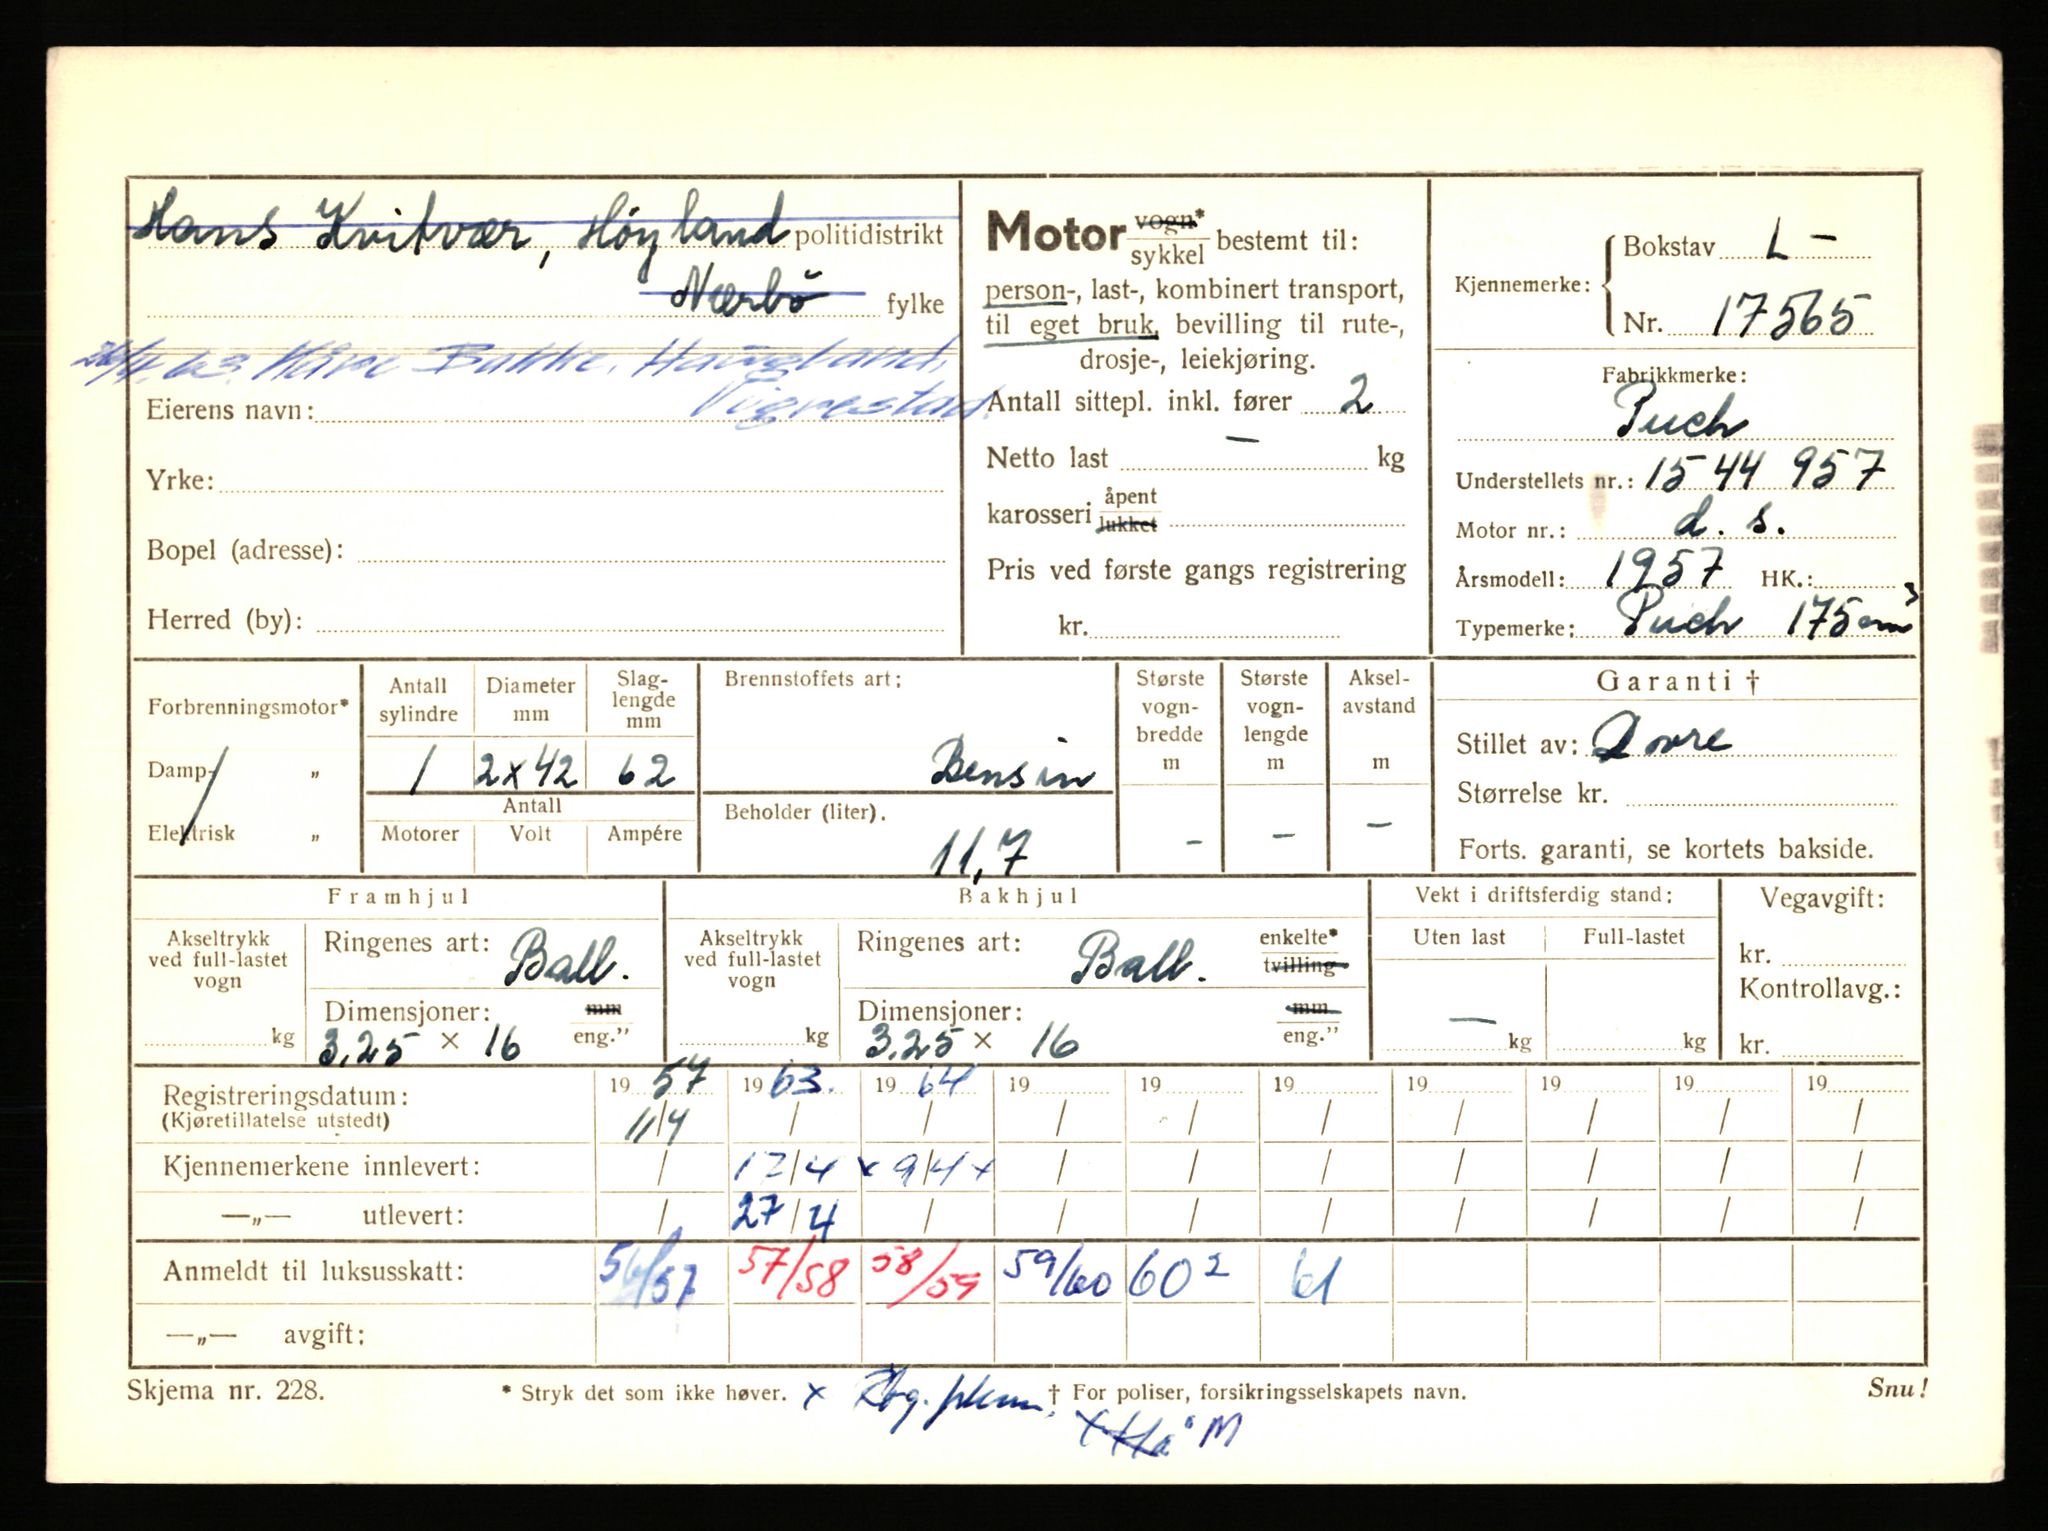 Hans Kvitvær, Høyland politidistrikt
Nærbö fylke
26/4.63. Kåre Bakke, Haugland,
Vigrestad.
Eierens navn:
Yrke:
Bopel (adresse):
Herred (by):
Motor vogn* sykkel bestemt til:
person-, last-, kombinert transport,
til eget bruk, bevilling til rute-,
drosje-, leiekjøring.
Antall sittepl. inkl. fører 2
Netto last — kg
karosseri åpent lukket
Pris ved første gangs registrering
kr.
Kjennemerke: Bokstav L -
Nr. 17565
Fabrikkmerke:
Puch
Understellets nr.: 1544 957
Motor nr.: d. s.
Årsmodell: 1957 HK.:
Typemerke: Puch 175 cm³
Forbrenningsmotor*
Damp- „
Elektrisk „
Antall sylindre
1
Diameter mm
2x42
Slag- lengde mm
62
Antall
Motorer Volt Ampére
Brennstoffets art:
Bensin
Beholder (liter).
11,7
Største vogn- bredde m
-
Største vogn- lengde m
-
Aksel- avstand m
-
Garanti †
Stillet av: Dovre
Størrelse kr.
Forts. garanti, se kortets bakside.
Framhjul
Akseltrykk ved full-lastet vogn
kg
Ringenes art: Ball.
Dimensjoner: mm
3.25 x 16 eng.”
Bakhjul
Akseltrykk ved full-lastet vogn
kg
Ringenes art: Ball. enkelte* tvilling
Dimensjoner: mm
3.25 x 16 eng.”
Vekt i driftsferdig stand:
Uten last Full-lastet
— kg kg
Vegavgift:
kr.
Kontrollavg.:
kr.
Registreringsdatum: 19 57 19 63. 19 64 19 19 19 19 19 19 19
(Kjøretillatelse utstedt) 11/4 / / / / / / / / /
Kjennemerkene innlevert: / 17/4 x 9/4 x / / / / / / /
—„— utlevert: / 27/4 / / / / / / / /
Anmeldt til luksusskatt: 56/57 57/58 58/59 59/60 60² 61
—„— avgift:
Skjema nr. 228. * Stryk det som ikke høver. x † For poliser, forsikringsselskapets navn. Snu!
M